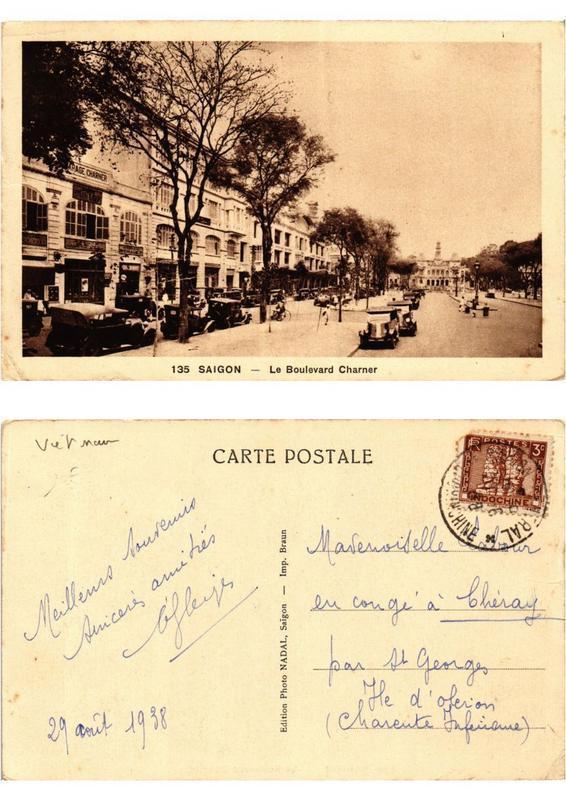 GARAGE CHARNER
135 SAIGON — Le Boulevard Charner
Viêt nam
CARTE POSTALE
POSTES
3c
INDOCHINE
Meilleurs souvenirs
Sincères amitiés
29 août 1938
Edition Photo NADAL, Saïgon — Imp. Braun
Mademoiselle
en congé à Chéray
par St Georges
Ile d'oléron
(Charente Inférieure)